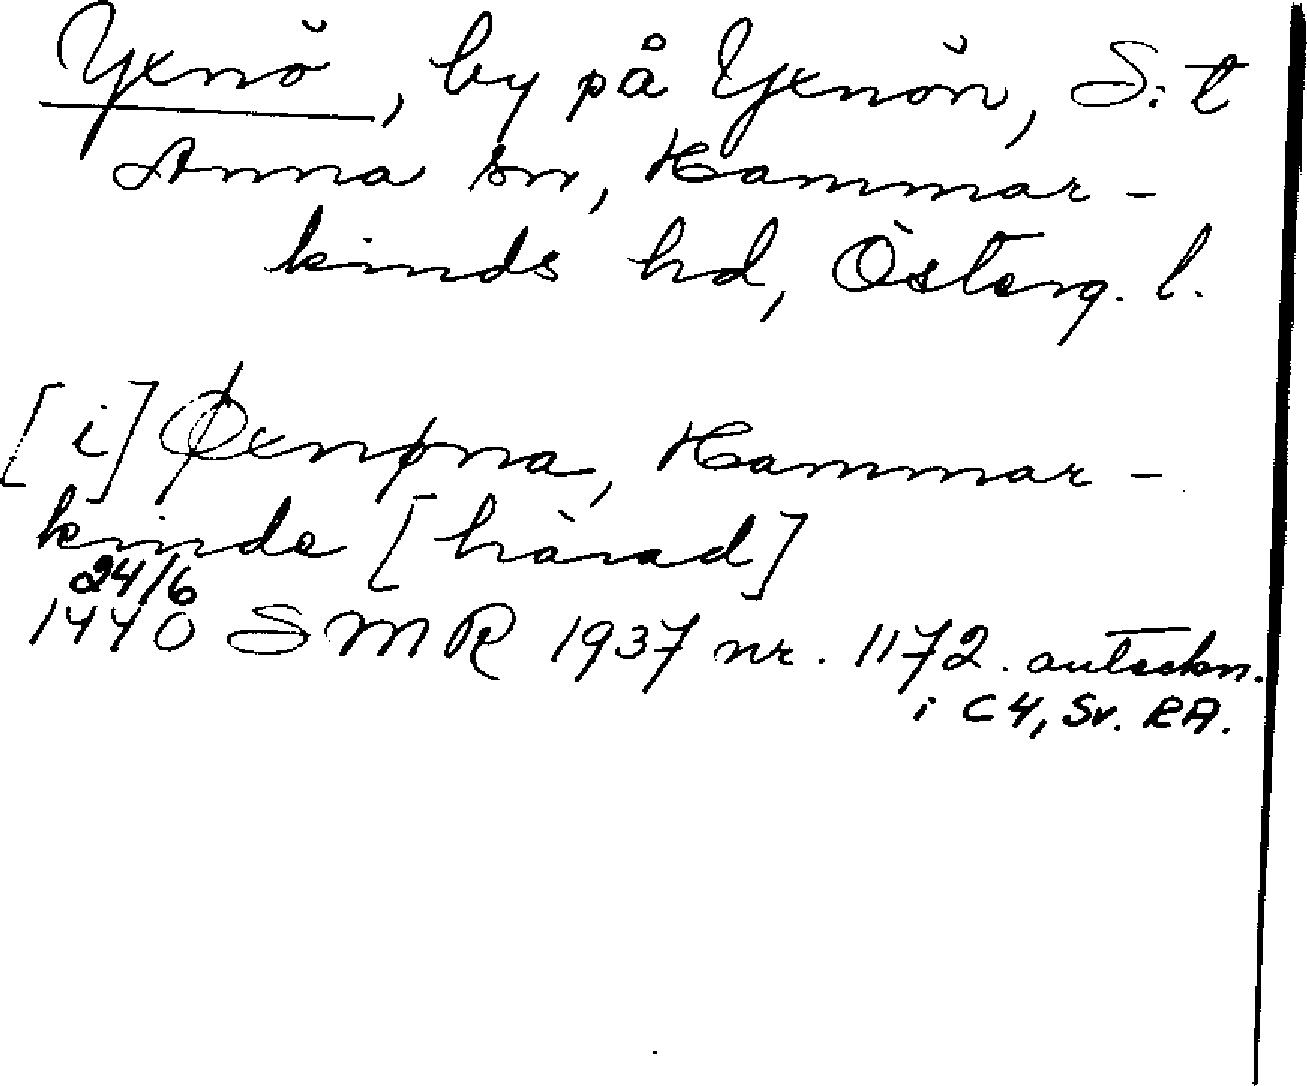 Yxnö, by på Yxnön, S:t
Anna sn, Hammar-
kinds hd, Österg. l.
[i] Øxnøna, Hammar-
kinde [härad]
24/6
1440 SMR 1937 nr. 1172. anteckn.
i C4, Sv. RA.